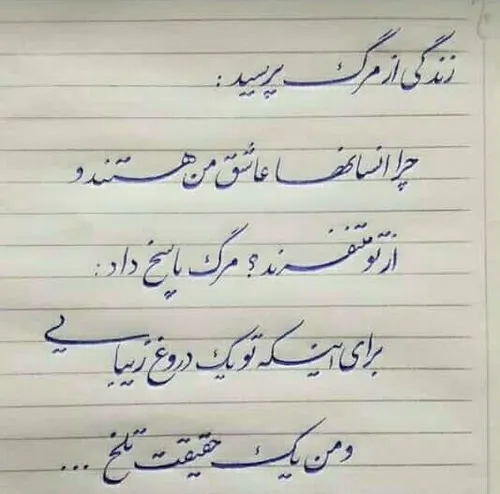 زندگی از مرگ پرسید :
چرا انسانها عاشق من هستند و
از تو متنفرند؟ مرگ پاسخ داد :
برای اینکه تو یک دروغ زیبایی
و من یک حقیقت تلخ ...